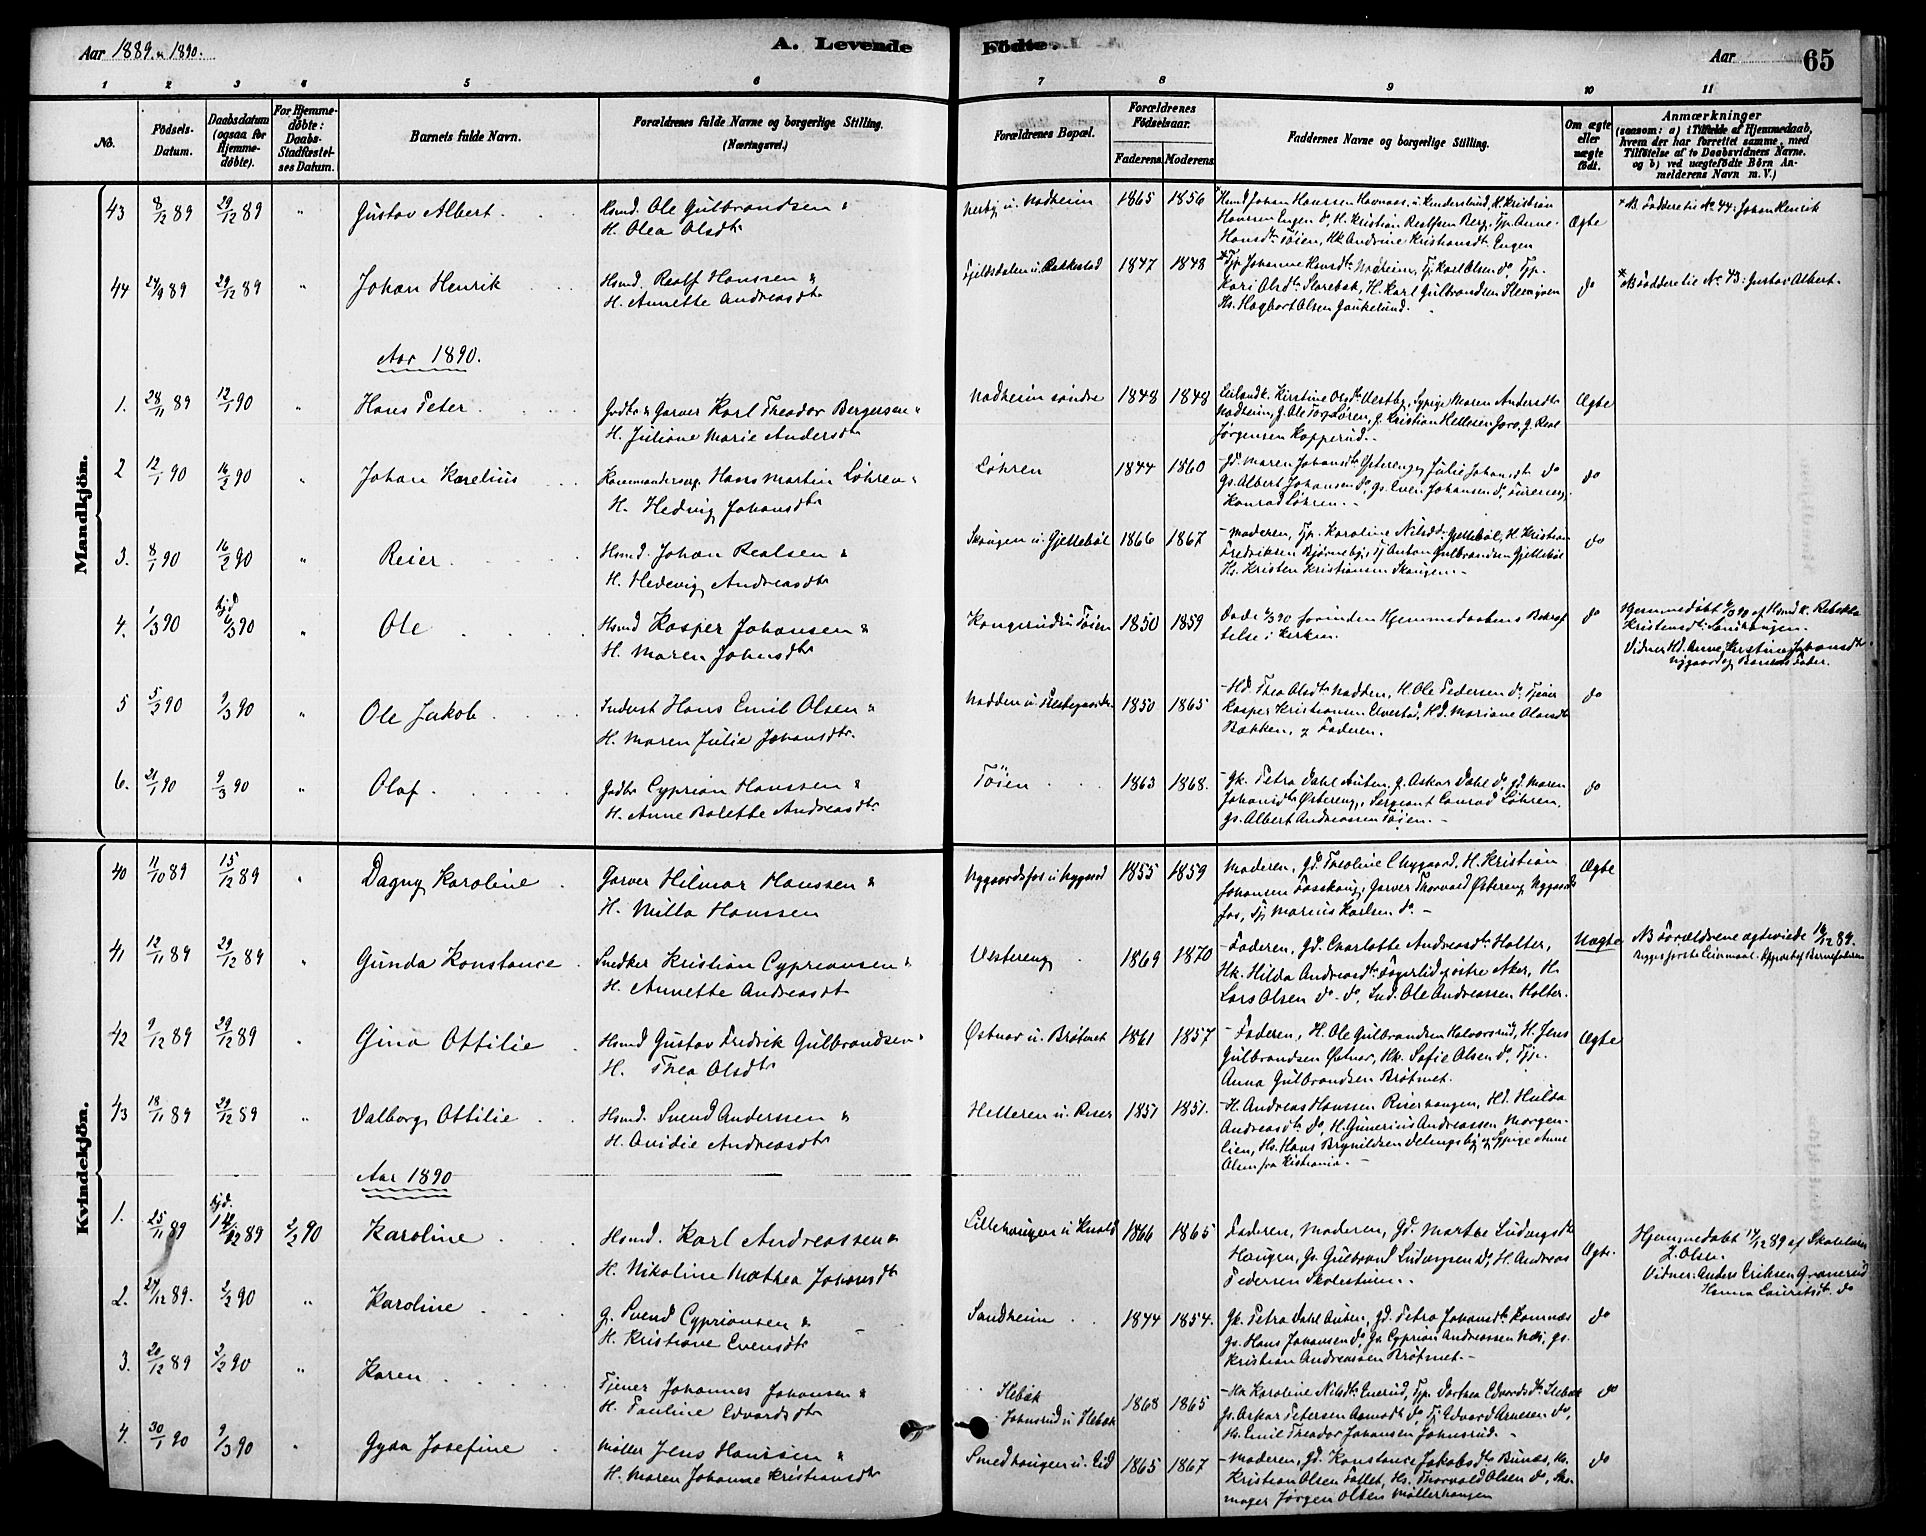 Aar 1889 & 1890.
A. Levende
Födte.
Aar
65
1 2 3 4 5 6 7 8 9 10 11
No.
Födsels-
Datum.
Daabsdatum
(ogsaa for
Hjemme-
döbte).
For Hjemme-
döbte:
Daabs-
Stadfæstel-
ses Datum.
Barnets fulde Navn.
Forældrenes fulde Navne og borgerlige Stilling.
(Næringsvei.)
Forældrenes Bopæl.
Forældrenes
Födselsaar.
Faderens. Moderens.
Faddernes Navne og borgerlige Stilling.
Om ægte
eller
uægte
födt.
Anmærkninger
(saasom: a) i Tilfælde af Hjemmedaab,
hvem der har forrettet samme, med
Tilföielse af to Daabsvidners Navne.
og b) ved uægtefödte Börn An-
melderens Navn m. V.)
Mandkjön.
43 8/12 89 29/12 89 " Gustav Albert
Hsmd. Ole Gulbrandsen &
H. Olea Olsdtr
Nerby u. Nadheim 1865 1856
Hansen Engen do, H. Kristian Rolfsen Berg, Tjp. Anne
Hansdtr Töien, Hk Andrine Kristiansdtr Engen
Ægte
* NB. Faddere til No 44: Johan Henrik
44 24/9 89 29/12 89 " Johan Henrik
Hsmd. Rolf Hanssen &
H. Annette Andreasdtr
Fjeldsdalen u. Rakkestad 1847 1848
* Tjp. Johanne Hansdtr Nadheim, Tj. Karl Olsen do, Tjp.
Kari Olsdtr Storebæk, H. Karl Gulbrandsen
Hs. Hagbart Olsen
do
* NB Faddere til No 43: Gustav Albert.
Aar 1890.
1. 28/11 89 12/1 90 " Hans Peter
Gadbr & Garver Karl Theodor Bergersen &
H. Juliane Marie Andersdtr
Nadheim söndre 1848 1848
Kirstine Olsdtr Vestby, Sypige Maren Andersdtr
Nadheim, G. Ole Lören, G. Kristian
Jörgensen Kopperud.
Ægte
2 12/1 90 16/2 90 " Johan Karelius
Hans Martin Löhren &
H. Hedvig Johansdtr
Löhren 1844 1860
Gd. Maren Johansdtr Östereng, Julie Johansdtr do
Gs. Albert Johansen do, Gs. Even Johansen do,
Konrad Löhren.
do
3. 8/1 90 16/2 90 " Reier
Hsmd. Johan Realsen &
H. Hedevig Andreasdtr
Skaugen u. Gjellebæl 1866 1867
- Moderen, Tjp. Karoline Nilsdtr Gjellebøl, H. Kristian
Fredriksen Bjørneby, Tj. Anton Gulbrandsen Gjellebøl
Hs. Kristen Kristiansen Skaugen.
do
4. 1/3 90 hjd 6/3 90 " Ole
Hsmd Kasper Johansen &
H. Maren Johnsdtr
Kongerud u Töien 1850 1859
Döde 6/3 90 forinden Hjemmedaabens Bekræf
telse i Kirken.
do
Hjemmedöbt 6/3 90 af Hsmd k. Rebekka
Kristensdtr
Vidner Hd. Anne Kirstine Johansdtr
Nygaard og Barnets Fader.
5 5/3 90 9/3 90 " Ole Jakob
Inderst Hans Emil Olsen &
H. Maren Julie Johansdtr.
Nadden u. Prestegaarden 1850 1865
- Hd. Thea Olsdtr Nadden, H. Ole Pedersen do, Tjener
Kasper Kristiansen Elvestad, Hd. Mariane Olausdtr
Bakken, & Faderen.
do
6. 21/1 90 9/3 90 " Olaf
Gadbr Cyprian Hanssen &
H. Anne Bolette Andreasdtr
Töien 1863 1868.
- Gk. Petra Dahl Auten, G. Askar Dahl do, Gd. Maren
Johansdtr Östereng, Sergeant Conrad Löhren,
Gs. Albert Andreassen Töien.
do
Kvindekjön.
40 11/10 89 15/12 89 " Dagny Karoline
Garver Hilmar Hanssen &
H. Milla Hanssen
Nygaardsfos u Nygaard 1855 1859
Moderen, Gd. Nygaard, H. Kristian
Johansen Fosshaug, Garver Thorvald Östereng Nygaards
fos, Tj Marius Karlsen do.
Ægte
41 12/11 89 29/12 89 " Gunda Konstance
Snedker Kristian Cypriansen &
H. Annette Andreasdt
Vestereng 1869 1870
- Faderen, Gd. Charlotte Andreasdtr Holter,
Hk. Hilda Andreasdtr Fagerlid östre Aker, H.
Lars Olsen do - do, Ind. Ole Andreassen Holter.
Uægte
NB Forældrene ægteviede 19/12 89.
Begges förste Leiermaal. Barnefaderen
42 9/12 89 29/12 89 " Gina Ottilie
Hsmd Gustav Fredrik Gulbrandsen &
H. Thea Olsdtr
Östnor u. Bråtmet 1861 1857
- Faderen, H. Ole Gulbrandsen Halvorsrud, H. Jens
Gulbrandsen Östnor, Hk. Sofie Olsen do, Tjp.
Anna Gulbrandsen Bråtmet.
Ægte
43 18/11 89 29/12 89 " Valborg Ottilie
Hsmd. Svend Anderssen &
H. Avidie Andreasdtr
Helleren u. Riser 1851 1851.
- H. Andreas Hanssen Riserhaugen, Hd. Hulda
Andreasdtr do, H. Gunerius Andreassen Morgen-
lien, Hs. Hans Brynildsen Delingsby, Sypige Anne
Olsen fra Kristiania.
Aar 1890
1. 25/11 89 hjd. 14/12 89 2/2 90 Karoline
Hsmd. Karl Andreassen &
H. Nikoline Mathea Johansdtr
Lillehaugen u Knold 1866 1865
Faderen, Moderen, Gd. Marthe Ludvigsdtr
Haugen, Gs. Gulbrand Ludvigsen do, H. Andreas
Pedersen Skolestuen.
Ægte.
Hjemmedöbt 14/12 89 af Skolelærer
J. Olsen.
Vidner: Anders Eriksen Granerud
Hanna Lauritsdtr do
2. 27/12 89. 2/2 90 " Karoline
G. Svend Cypriansen &
H. Kristiane Evensdtr
Sandheim 1844 1854.
Gk. Petra Dahl Auten, Gd. Petra Johansdtr Kamnæs
Gs. Hans Johansen do, Gs. Cyprian Andreassen Næs, Gs.
Kristian Andreassen Bråtmet.
do
3. 20/12 89 2/2 90 " Karen
Tjener Johannes Johansen &
H. Pauline Edvardsdtr
Slebæk
Johnsrud u Slebæk 1868 1865
- Hk Karoline Nilsdtr Enerud, Tjp. Dorthea Edvardsdtr Slebæk
Gs. Askar Petersen do, Tj. Edvard Arnesen do,
Hs. Emil Theodor Johansen Johnsrud.
do
4. 30/1 90 9/3 90 " Gyda Josefine
Möller Jens Hanssen &
H. Maren Johanne Kristiansdtr
Smedhaugen u. Eid 1865 1867
- Moderen, Gd. Konstance Jakobsdtr Bunæs, H.
Kristian Olsen Fallet, Hs. Thorvald Olsen do, Sko
mager Jörgen Olsen Möllerhaugen
do